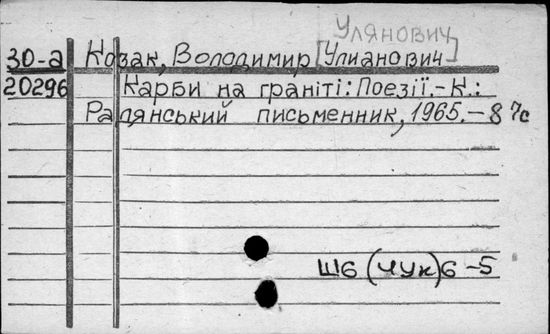 Улянович
30-а Козак, Володимир [Улианович]
20296 Карби на граніті: Поезії.-К.:
Радянський письменник, 1965.-87с
Ш6(4Ук)6-5